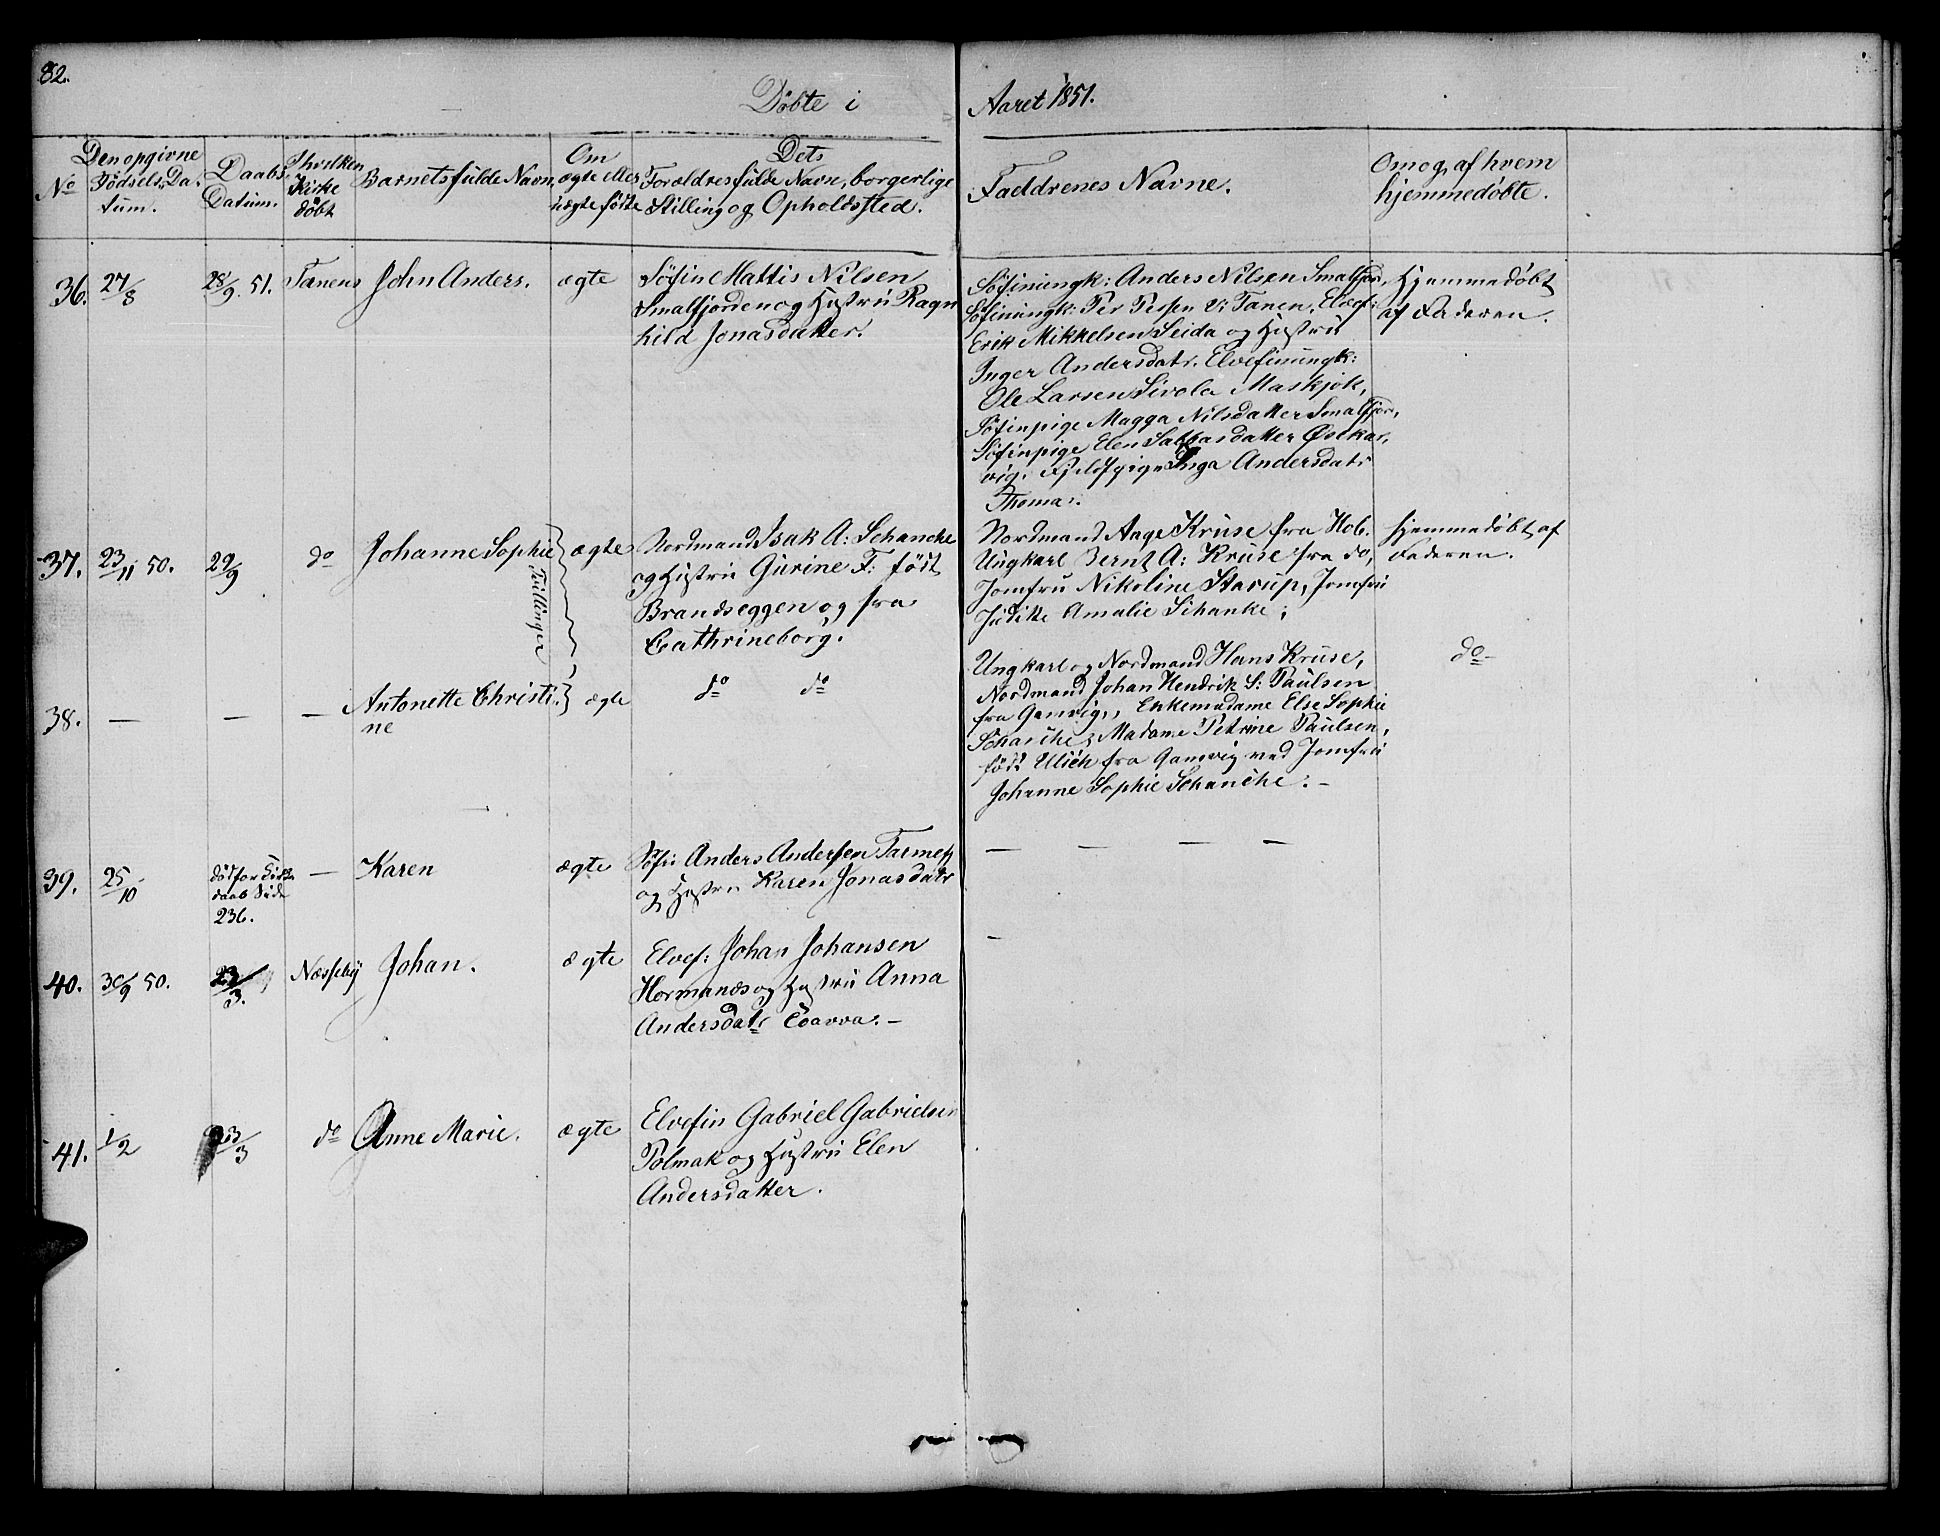 82.
Döbte i Aaret 1851.
No
Den opgivne Födsels Datum.
Daabs Datum.
I hvilken Kirke döbt
Barnets fulde Navn.
Om ægte eller uægte födte
Dets Forældres fulde Navn, borgerlige Stilling og Opholdssted.
Faddrenes Navne.
Om og af hvem hjemmedöbte.
36. 27/8 28/9. 51. Tanens John Anders. ægte
Söfin Mattis Nilsen
Smalfjorden og Hustru Ragn
hild Jonasdatter.
Söfinungk: Anders Nilsen Smalfjor,
Söfinungk: Per Persen v: Tanen, Elvef:
Erik Mikkelsen Seida og Hustru
Inger Andersdatr. Elvefinungk:
Ole Larsen Sivola Maskjok,
Söfinpige Magga Nilsdatter Smalfjor,
Söfinpige Elen datter Östkar,
vig, Fjeldfpige Inga Andersdatr
Thomas.
Hjemmedöbt
af Faderen.
37. 23/11 50. 29/9 do Johanne Sophie ægte
Tvillinger
Nordmand Isak A: Schancke
og Hustru Gurine F: födt
Brandseggen og fra
Cathrineborg.
Nordmand Aage Kruse fra Hob.
Ungkarl Bernt A: Kruse fra do,
Jomfru Nikoline Starup, Jomfru
Juditte Amalie Schanke;
Hjemmedöbt af
Faderen.
38. — — — Antonette Christi-
ne
ægte
do do
Ungkarl og Nordmand Hans Kruse,
Nordmand Johan Hendrik S: Paulsen
fra Gamvig,, Enkemadame Else Sophie
Schanche, Madame Petrine Paulsen,
födt Ulich fra Gamvig ved Jomfru
Johanne Sophie Schanche. –
do –
39. 25/10 död för Kirke
daab Side
236.
— Karen ægte
Söfin Anders Andersen
og Hustru Karen Jonasdatr
— — — —
40. 30/9 50. 23/3. Næsseby Johan. ægte
Elvef: Johan Johansen
Hormanæs og Hustru Anna
Andersdatr Coavva. –
—
41. 1/2 23/3 do Anne Marie. ægte
Elvefin Gabriel Gabrielsen
Polmak og Hustru Elen
Andersdatter.